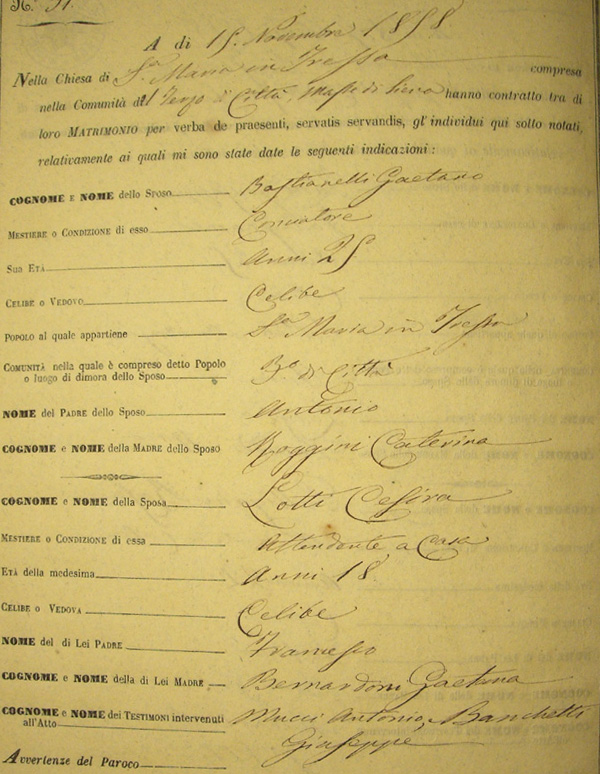 N.° 51.
A di 15. Novembre 1858
Nella Chiesa di S.a Maria in Tressa compresa
nella Comunità del Terzo di Città, Masse di Siena hanno contratto tra di
loro MATRIMONIO per verba de praesenti, servatis servandis, gl'individui qui sotto notati,
relativamente ai quali mi sono state date le seguenti indicazioni:
COGNOME E NOME dello Sposo Bastianelli Gaetano
MESTIERE O CONDIZIONE di esso
SUA ETÀ Anni 25
CELIBE O VEDOVO Celibe
POPOLO al quale appartiene S.a Maria in Tressa
COMUNITÀ nella quale è compreso detto Popolo
o luogo di dimora dello Sposo 3.o di Città
NOME del PADRE dello Sposo Antonio
COGNOME e NOME della MADRE dello Sposo Roggini Caterina
COGNOME e NOME della Sposa Lotti Cesira
MESTIERE O CONDIZIONE di essa Attendente a Casa
ETÀ della medesima Anni 18
CELIBE O VEDOVA Celibe
NOME del di Lei PADRE Francesco
COGNOME e NOME della di Lei MADRE Bernardoni Gaetana
COGNOME e NOME dei TESTIMONI intervenuti Mucci Antonio, Banchetti
all'Atto Giuseppe
Avvertenze del Paroco